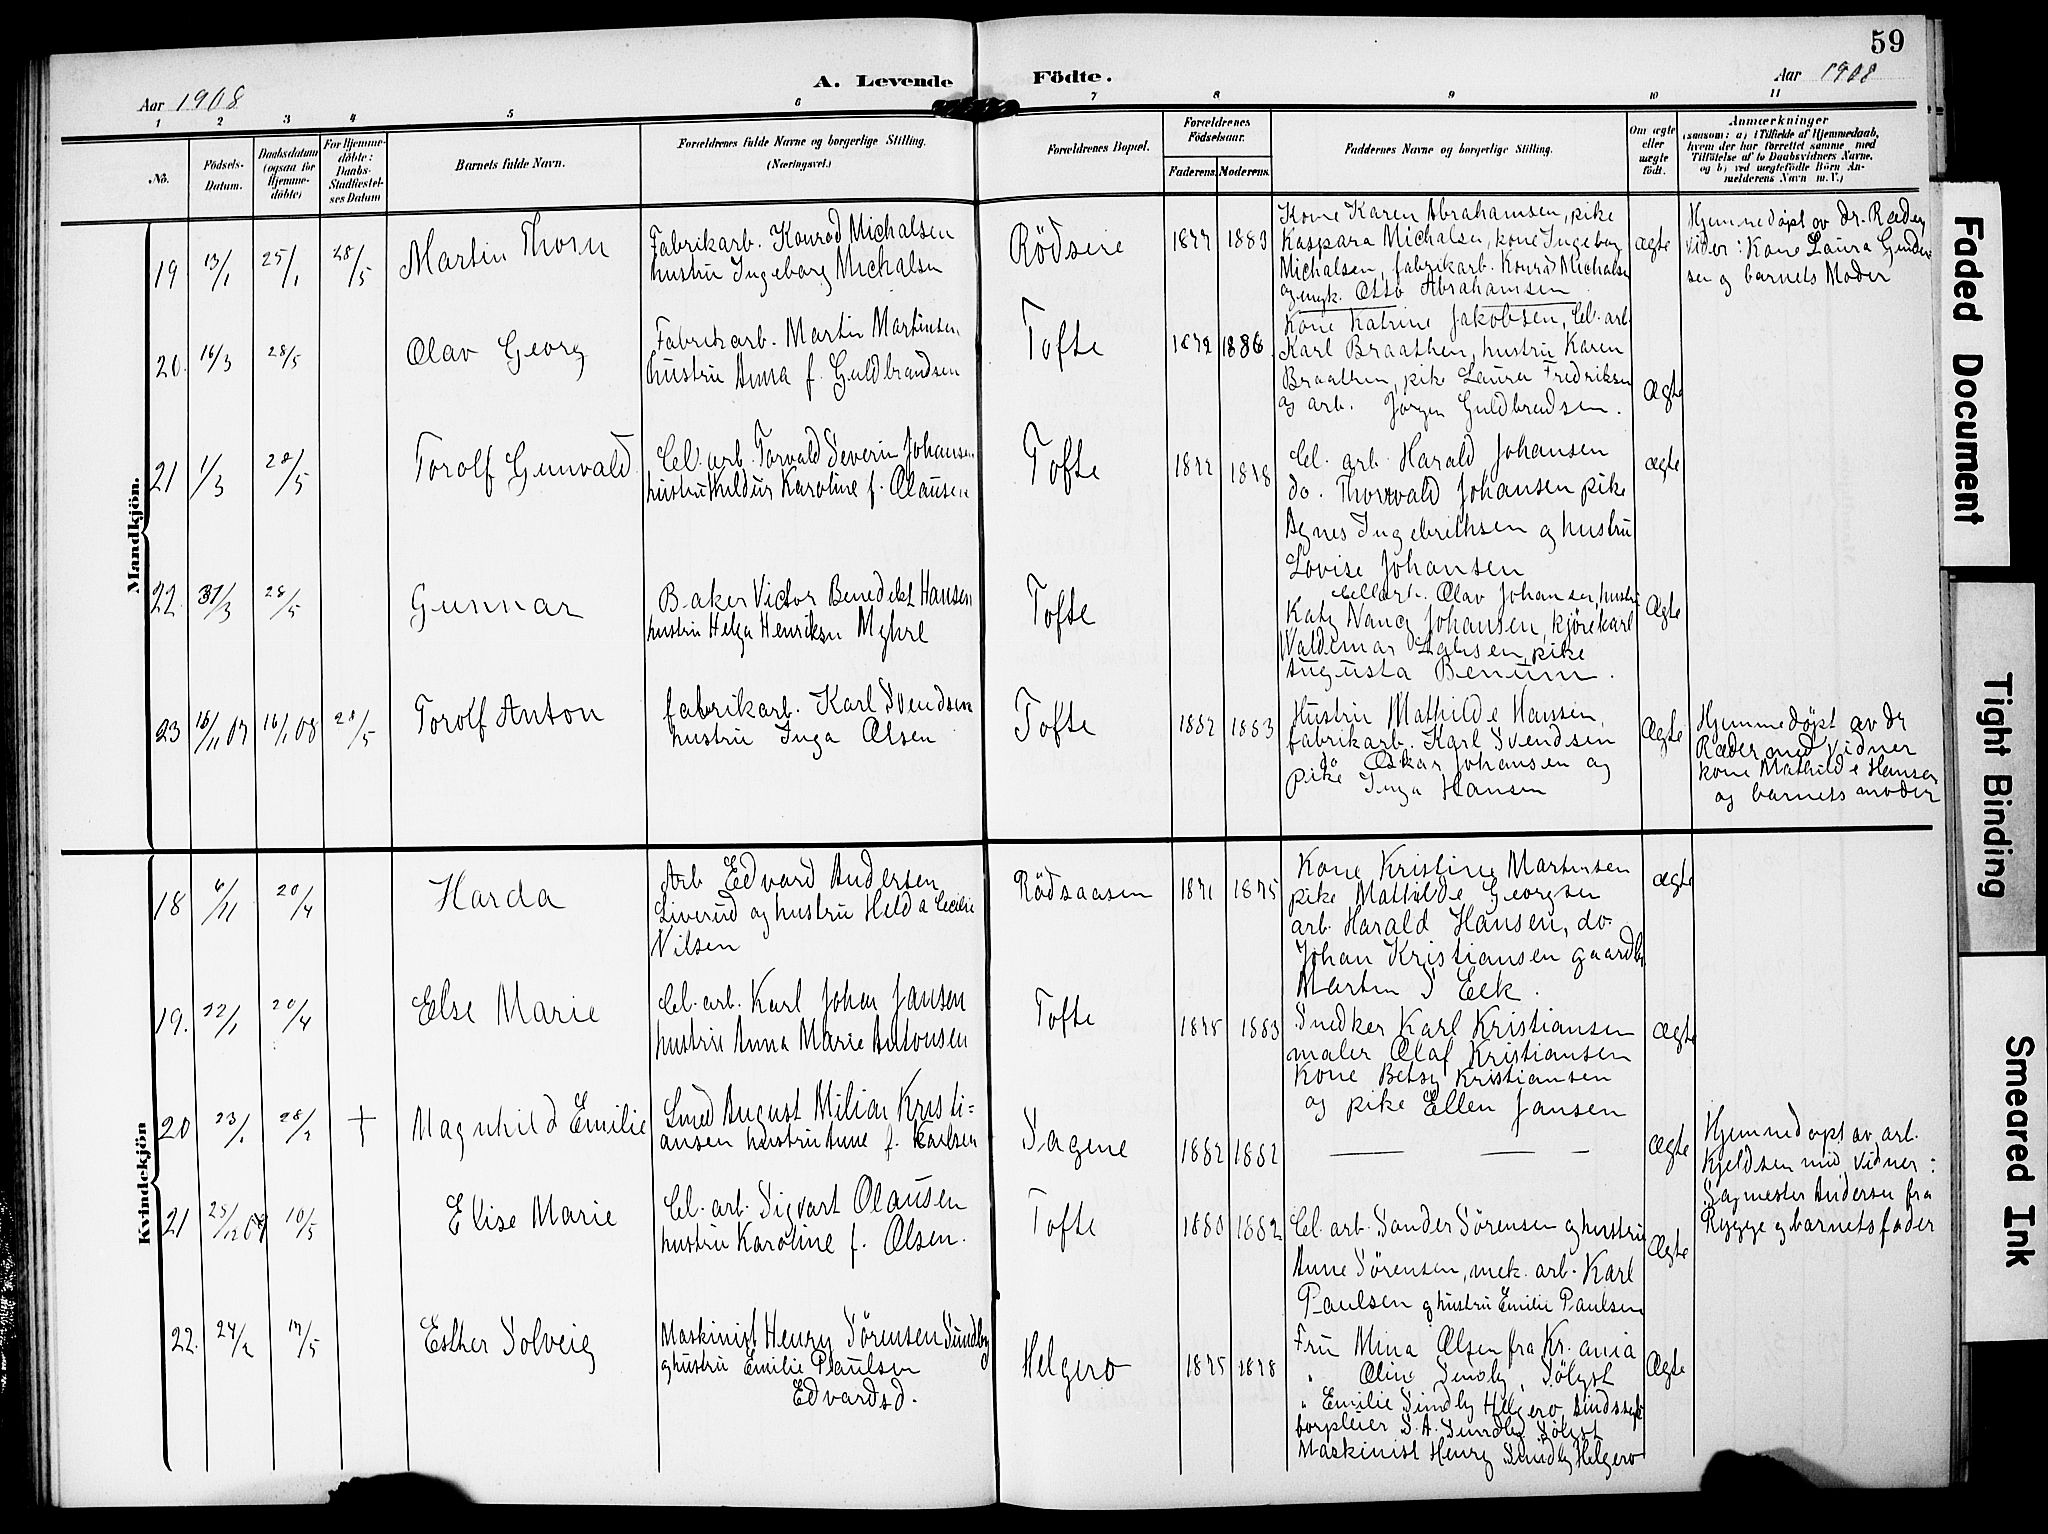 59
A. Levende Födte.
Aar 1908
Aar 1908
1 2 3 4 5 6 7 8 9 10 11
No.
Födsels-
Datum.
Daabsdatum
(ogsaa for
Hjemme-
döbte)
For Hjemme-
döbte:
Daabs-
Stadfæstel-
ses Datum
Barnets fulde Navn.
Forældrenes fulde Navne og borgerlige Stilling.
(Næringsvei.)
Forældrenes Bopæl.
Forældrenes
Födselsaar.
Faderens. Moderens.
Faddernes Navne og borgerlige Stilling.
Om ægte
eller
uægte
födt.
Anmærkninger
(saasom: a) i Tilfælde af Hjemmedaab,
hvem der har forrettet samme, med
Tilföielse af to Daabsvidners Navne,
og b) ved uægtefödte Börn An-
melderens Navn m. V.)
Mandkjön.
19 13/1 25/1 28/5 Martin Thorn
Fabrikarb. Konrad Michalsen
hustru Ingeborg Michalsen
Rödsene 1877 1883
Kone Karen Abrahamsen, pike
Kaspara Michalsen, kone Ingeborg
Michalsen, fabrikarb. Konrad Michalsen
og ungk. Otto Abrahamsen
ægte
Hjemmedøpt av dr. Ræder
vidner: Kone Laura Gunder-
sen og barnets Moder
20. 16/3 28/5 Olav Georg
Fabrikarb. Martin Martinsen
hustru Anna f. Guldbrandsen
Tofte 1872 1886
Kone Katrine Jakobsen, Cel. arb.
Karl Braathen, hustru Karen
Braathen, pike Laura Fredriksen
og arb. Jörgen Guldbrandsen.
Ægte
21 1/3 28/5 Torolf Gunvald
Cel. arb. Torvald Severin Johansen
hustru Huldur Karoline f. Olausen
Tofte 1877 1878
Cel. arb. Harald Johansen
do. Thorvald Johansen pike
Agnes Ingebrethsen og hustru
Lovise Johansen
ægte
22. 31/3 28/5 Gunnar
Baker Victor Benedikt Hansen
hustru Helga Henriksen Myhre
Tofte
Cellarb. Olav Johansen, hustru
Katy Nancy Johansen, kjörekarl
Valdemar, pike
Augusta Benum.
Ægte
23 16/11 07 16/1 08 28/5 Torolf Anton
fabrikarb. Karl Svendsen
hustru Inga Olsen
Tofte 1882 1883
Hustru Mathilde Hanssen,
fabrikarb. Karl Svendsen
do Oskar Johansen og
pike Inga Hansen
Ægte
Hjemmedøpt av dr
Ræder med vidner
kone Mathilde Hansen
og barnets moder
Kvindekjön
18 6/11 20/4 Harda
Arb Edvard Andersen
Liverud og hustru Hilda Cecilie
Nilsen
Rödsaasen 1871 1875
Kone Kristine Martinsen
pike Mathilde Georgsen
arb. Harald Hansen, do.
Johan Kristiansen gaardbr.
Martin S Eek.
ægte
19. 22/1 20/4 Else Marie
Cel. arb. Karl Johan Jansen
hustru Anna Marie Antonsen
Tofte 1875 1883
Snedker Karl Kristiansen
maler Olaf Kristiansen
Kone Betsy Kristiansen
og pike Ellen Jansen
ægte
20 23/1 28/2 † Magnhild Emilie
Smed August Milian Kristi=
ansen hustru Anne f. Karlsen
Sagene 1882 1882 — — —
ægte
Hjemmedøpt av arb.
Kjeldsen med vidner:
Sagmester Andersen fra
Rygge og barnets fader
21 25/12 07 10/5 Elise Marie
Cel. arb. Sigvart Olausen
hustru Karoline f. Olsen.
Tofte 1880 1882
Cel. arb. Sander Sörensen og hustru
Anne Sörensen, mek. arb. Karl
Paulsen og hustru Emilie Paulsen
Ægte
22. 24/2 17/5 Esther Solveig
Maskinist Henry Sörensen Sundby
og hustru Emilie Paulsen
Edvardsd.
Helgero 1875 1878
Fru Mina Olsen fra Kr.ania
" Oline Sundby, Sölyst
" Emilie Sundby Helgero,
S. A. Sundby Sölyst
Maskinist Henry Sundby Helgero
Ægte
Faded Document
Tight Binding
Smeared Ink